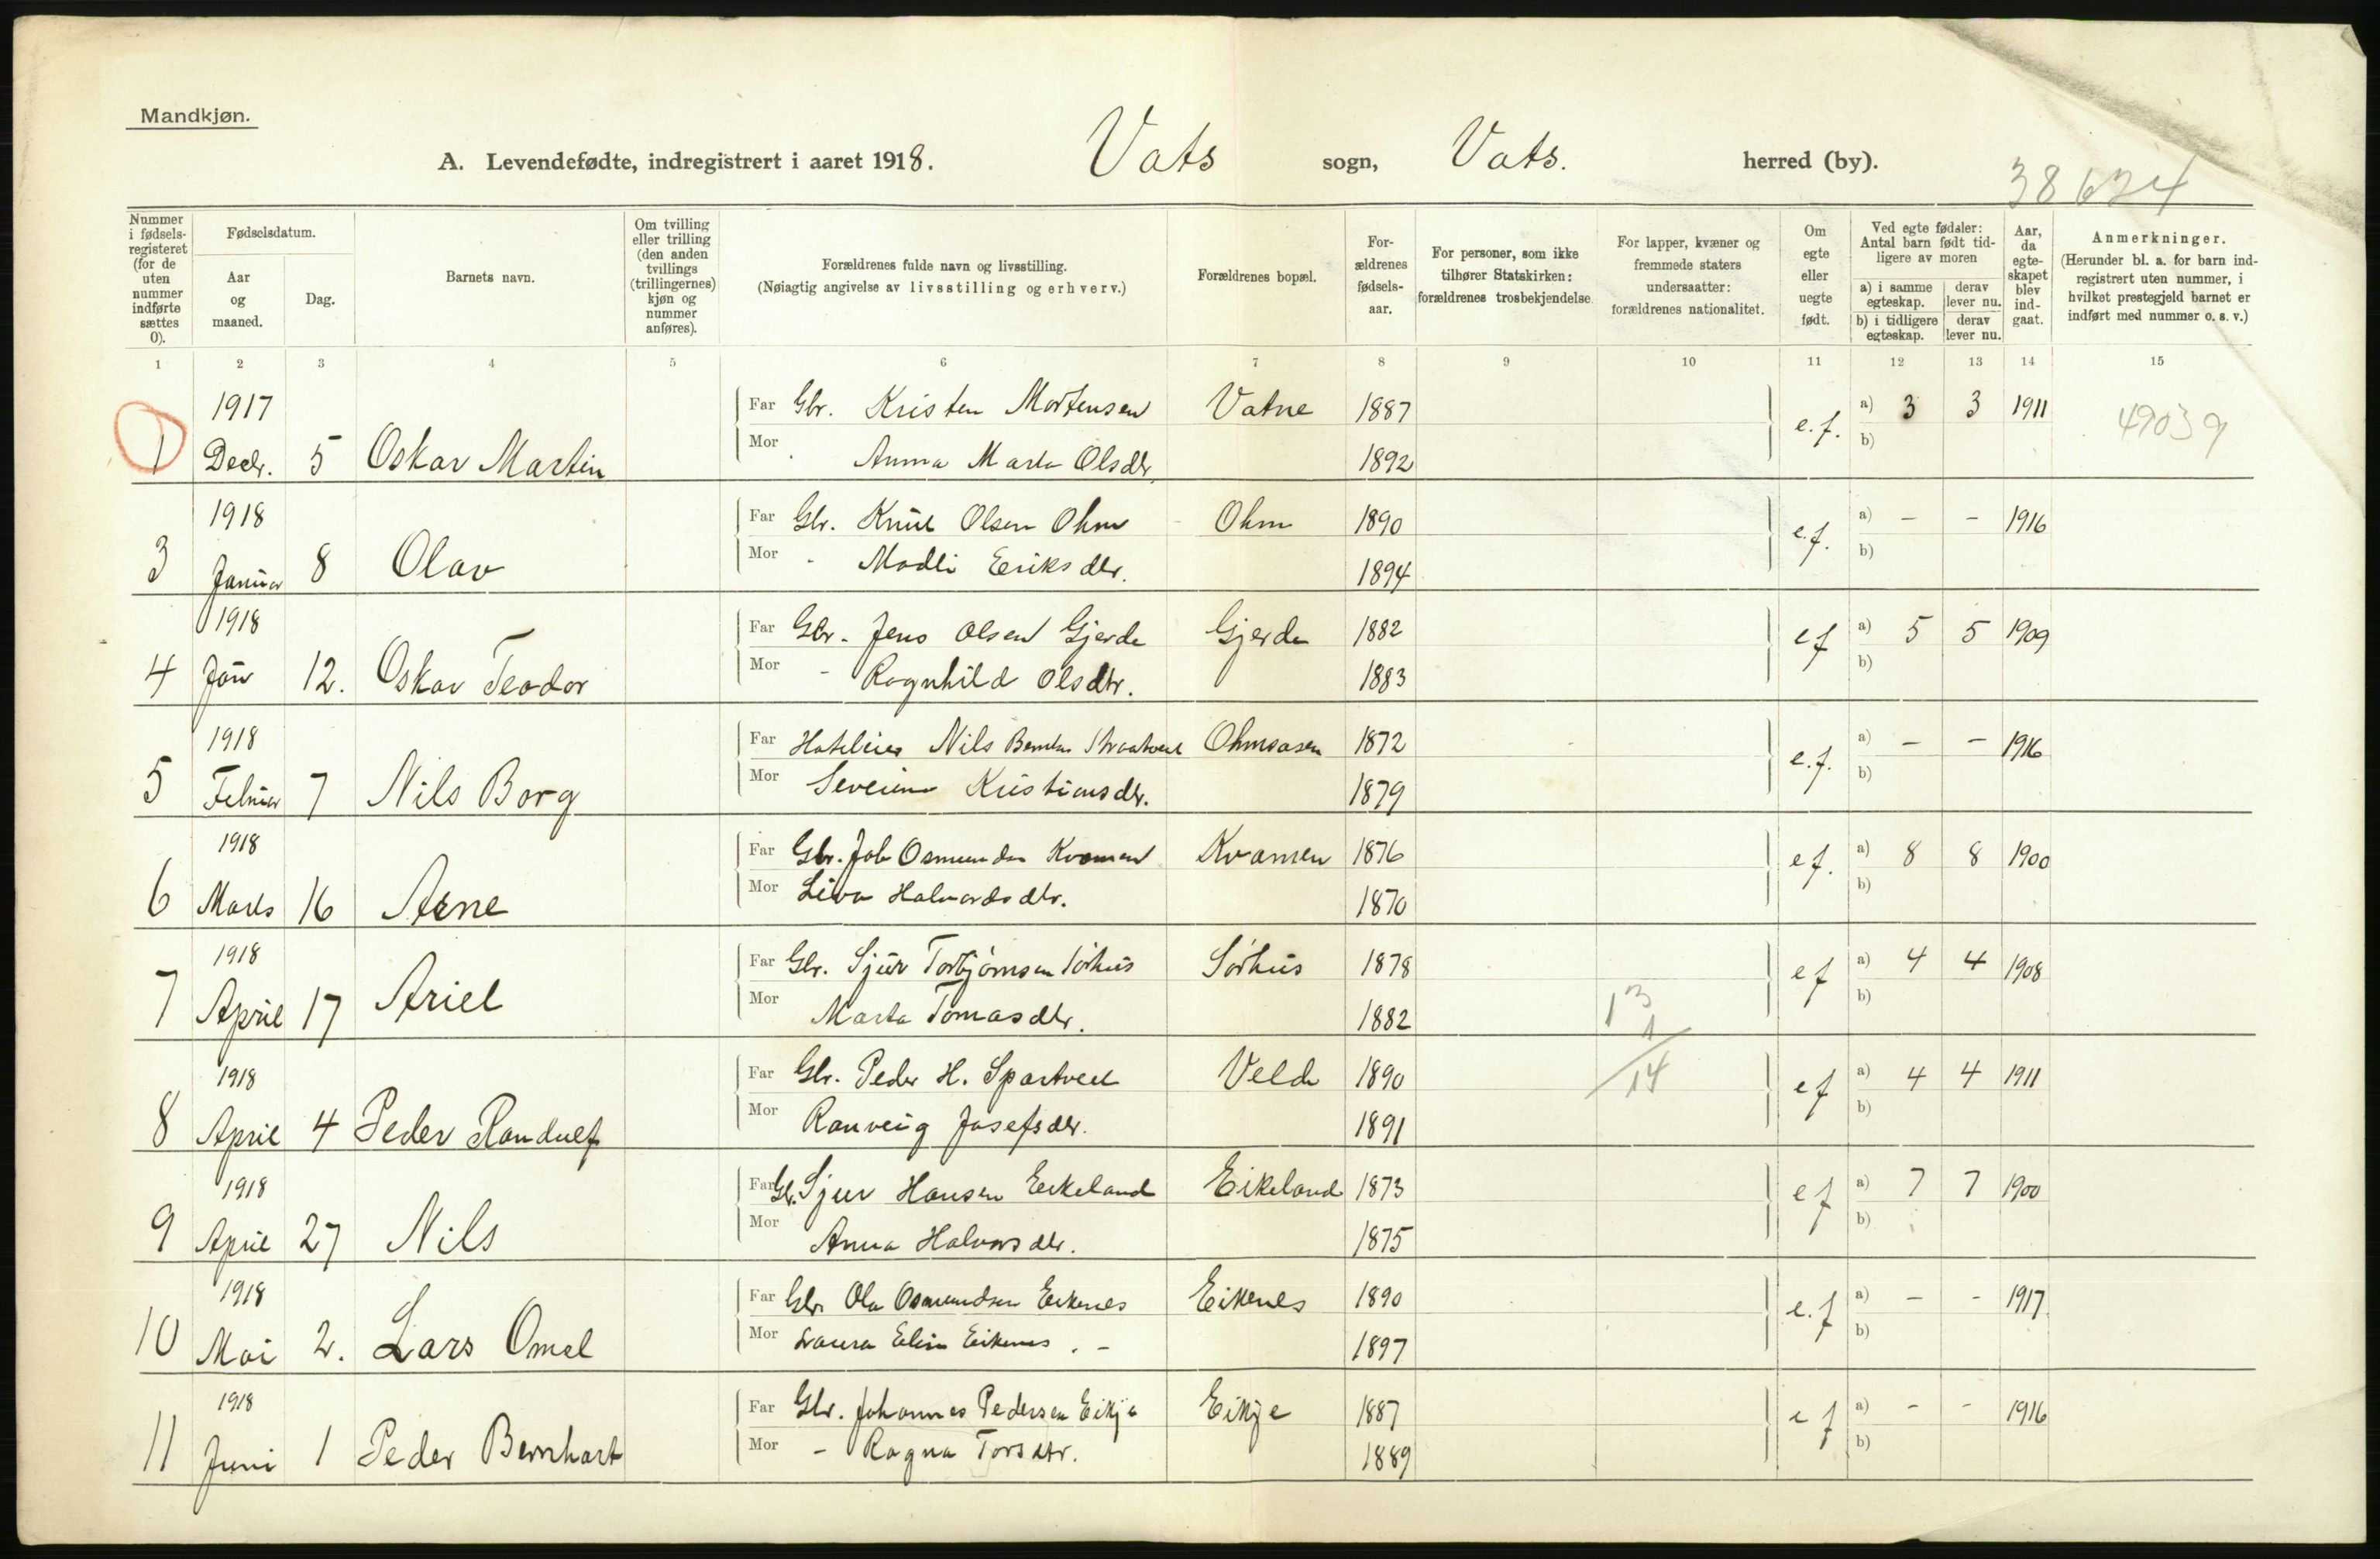 Mandkjøn.
A. Levendefødte, indregistrert i aaret 1918. Vats sogn, Vats. herred (by).
38624
Nummer i fødselsregisteret (for de uten nummer indførte sættes 0).
Fødselsdatum.
Aar og maaned.
Dag.
Barnets navn.
Om tvilling eller trilling (den anden tvillings (trillingernes) kjøn og nummer anføres).
Forældrenes fulde navn og livsstilling. (Nøiagtig angivelse av livsstilling og erhverv.)
Forældrenes bopæl.
Forældrenes fødselsaar.
For personer, som ikke tilhører Statskirken: forældrenes trosbekjendelse.
For lapper, kvæner og fremmede staters undersaatter: forældrenes nationalitet.
Om egte eller uegte født.
Ved egte fødsler: Antal barn født tidligere av moren
a) i samme egteskap. derav lever nu.
b) i tidligere egteskap. derav lever nu.
Aar, da egteskapet blev indgaat.
Anmerkninger. (Herunder bl. a. for barn indregistrert uten nummer, i hvilket prestegjeld barnet er indført med nummer o. s. v.)
1 2 3 4 5 6 7 8 9 10 11 12 13 14 15
1917 Far Gbr. Kristen Mortensen Vatne 1887 e.f. a) 3 3 1911 49039
1 Decbr. 5 Oskar Martin Mor Anna Marta Olsdtr. 1892 b)
1918 Far Gbr. Knut Olsen Ohm Ohm 1890 e.f. a) – – 1916
3 Januar 8 Olav Mor - Madli Eriksdtr. 1894 b)
1918 Far Gbr. Jens Olsen Gjerde Gjerde 1882 e f a) 5 5 1909
4 Jan 12. Oskar Teodor Mor - Ragnhild Olsdtr. 1883 b)
1918 Far Hoteleier Nils Ohmsasen 1872 e.f. a) – – 1916
5 Februar 7 Nils Borg Mor Severine Kristiansdtr. 1879 b)
1918 Far Gbr. Job Osmundsen Kvamen Kvamen 1876 e f. a) 8 8 1900
6 Mars 16 Arne Mor Liva Halvardsdtr. 1870 b)
1918 Far Gbr. Sjur Torbjørnsen Sørhus Sørhus 1878 e f a) 4 4 1908
7 April 17 Ariel Mor Marta Tomasdtr. 1882 b)
13
1
14
1918 Far Gbr. Peder H. Spartveit Velde 1890 e f a) 4 4 1911
8 April 4 Peder Randulf Mor Ranveig Josefsdtr. 1891 b)
1918 Far Gbr. Sjur Hansen Eikeland Eikeland 1873 e f a) 7 7 1900
9 April 27 Nils Mor Anna Halvorsdtr. 1875 b)
1918 Far Gbr. Ola Osmundsen Eikenes Eikenes 1890 e.f a) – - 1917
10 Mai 2. Lars Omal Mor Laura Elin Eikenes . - 1897 b)
1918 Far Gbr. Johannes Pedersen Eikje Eikje 1887 e f a) - - 1916
11 Juni 1 Peder Bernhart Mor - Ragna Torsdtr. 1889 b)